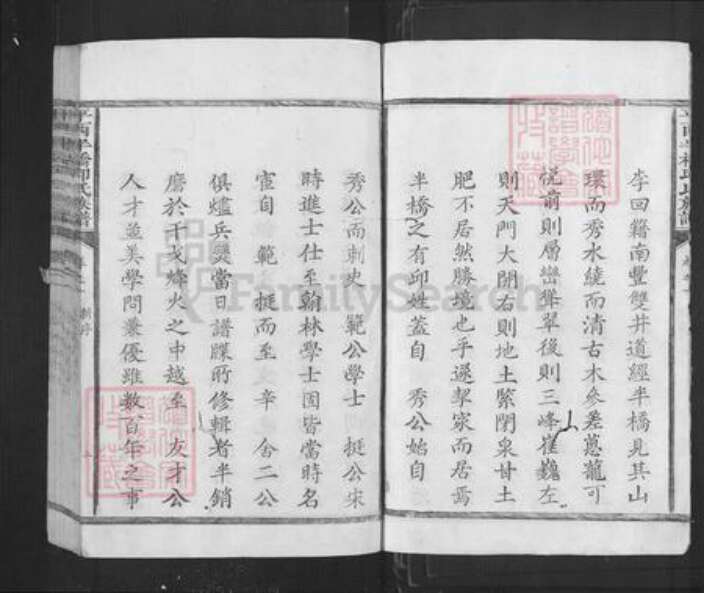 李回籍南豐雙井道經半橋見其山
環而秀水繞而清古木參差蔥蘢可
悅前則層巒聳翠後則三峰崔巍左
則天門大開右則地土緊閉泉甘土
肥不居然勝境也乎遂挈家而居焉
半橋之有邱姓蓋自 秀公始自
秀公而刺史 範公學士 挺公宋
時進士仕至翰林學士固皆當時名
宦自 範 挺而至 辛 舍二公
俱爐兵燹當日譜牒所修輯者半銷
磨於干戈烽火之中越至 友才公
人才並美學問兼優雖數百年之事
半橋邱氏族譜
FamilySearch